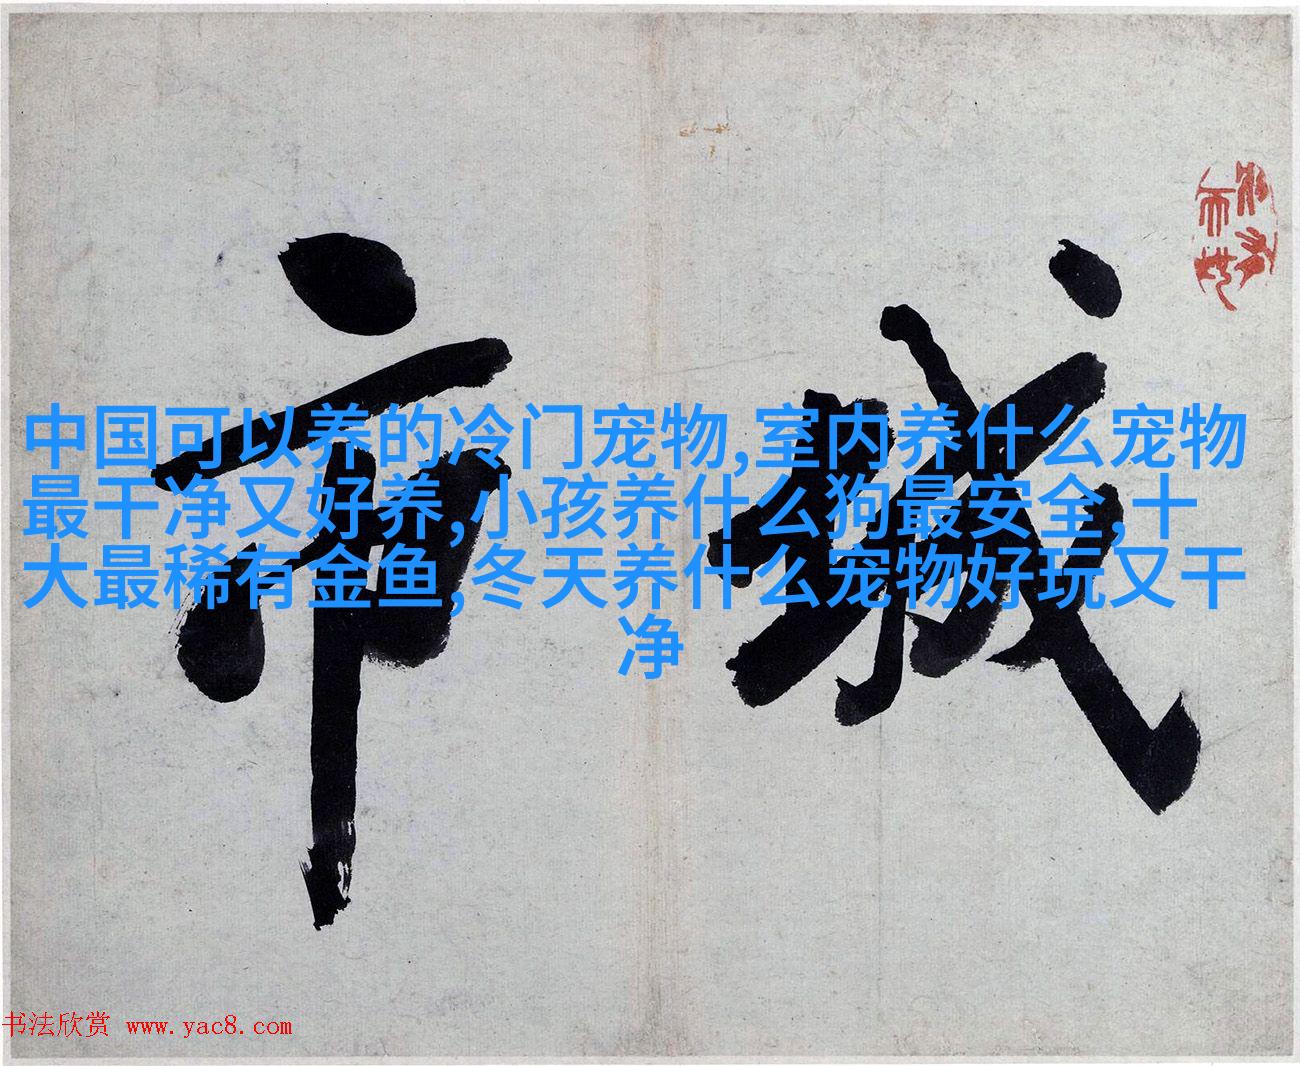 城市
中国可以养的冷门宠物,室内养什么宠物
最干净又好养,小孩养什么狗最安全,十
大最稀有金鱼,冬天养什么宠物好玩又干
净
书法欣赏 www.yac8.com